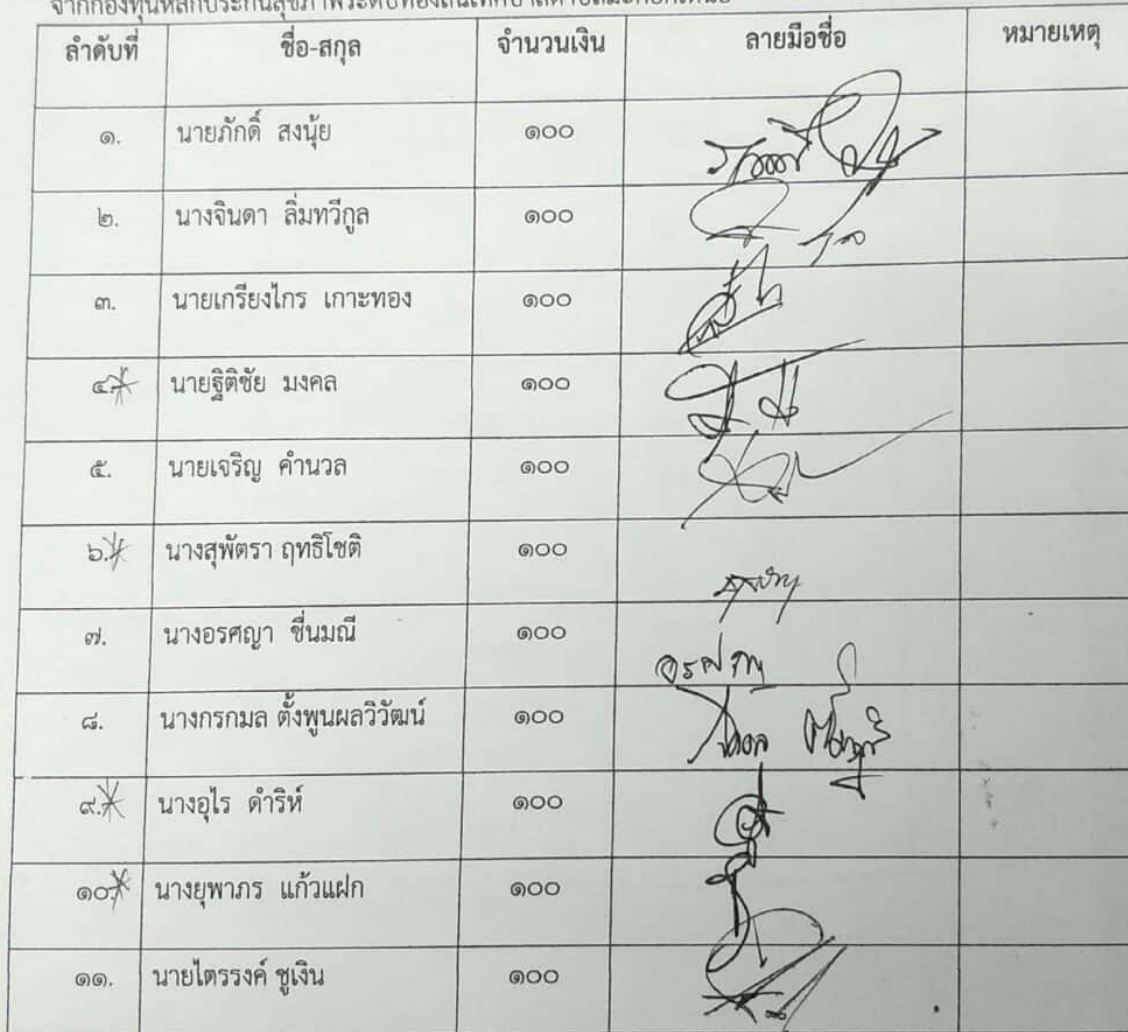 จากกองทุนหลักประกันสุขภาพระดับท้องถิ่นเทศบาลตำบล
ลำดับที่ ชื่อ-สกุล จำนวนเงิน ลายมือชื่อ หมายเหตุ
๑. นายภักดิ์ สงนุ้ย ๑๐๐
๒. นางจินดา ลิ่มทวีกูล ๑๐๐
๓. นายเกรียงไกร เกาะทอง ๑๐๐
๔. นายฐิติชัย มงคล ๑๐๐
๕. นายเจริญ คำนวล ๑๐๐
๖. นางสุพัตรา ฤทธิโชติ ๑๐๐
๗. นางอรศญา ชื่นมณี ๑๐๐ อรศญา
๘. นางกรกมล ตั้งพูนผลวิวัฒน์ ๑๐๐
๙. นางอุไร ดำริห์ ๑๐๐
๑๐. นางยุพาภร แก้วแฝก ๑๐๐
๑๑. นายไตรรงค์ ชูเงิน ๑๐๐